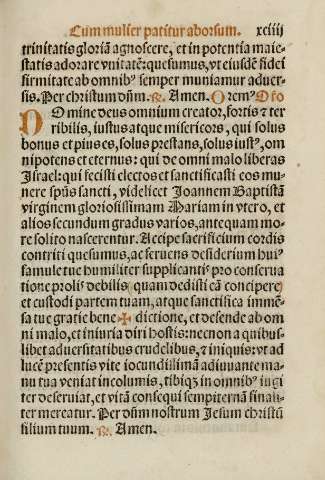 Cum mulier patitur aborsum. xciiij
trinitatis gloriā agnoscere, et in potentia maie-
statis adorare vnitatē: quesumus, vt eiusdē fidei
firmitate ab omnibꝰ semper muniamur aduer-
sis. Per christum dñm. ℟. Amen. Oremꝰ Oŕo
Domine deus omnium creator, fortis & ter
ribilis, iustus atque misericors, qui solus
bonus et pius es, solus prestans, solus iustꝰ, om
nipotens et eternus: qui de omni malo liberas
Israel: qui fecisti electos et sanctificasti eos mu-
nere spūs sancti, videlicet Joannem Baptistā
virginem gloriosissimam Mariam in vtero, et
alios secundum gradus varios, antequam mo-
re solito nascerentur. Accipe sacrificium cordis
contriti quesumus, ac feruens desiderium huiꝰ
famule tue humiliter supplicantis pro conserua
tione prolis debilis (quam dedisti eā concipere)
et custodi partem tuam, atque sanctifica immē-
sa tue gratie bene ✠ dictione, et defende ab om
ni malo, et iniuria diri hostis: necnon a quibus-
libet aduersitatibus crudelibus, & iniquis: vt ad
lucē presentis vite iocundissima adiuuante ma-
nu tua veniat incolumis, tibiqꝫ in omnibꝰ iugi
ter deseruiat, et vitā consequi sempiternā finali-
ter mereatur. Per dñm nostrum Jesum christū
filium tuum. ℟. Amen.